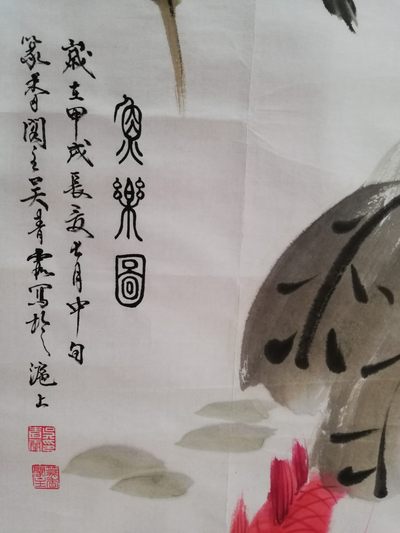 魚樂圖
歲在甲戌長夏七月中旬
篆香閣主吳青霞寫於滬上